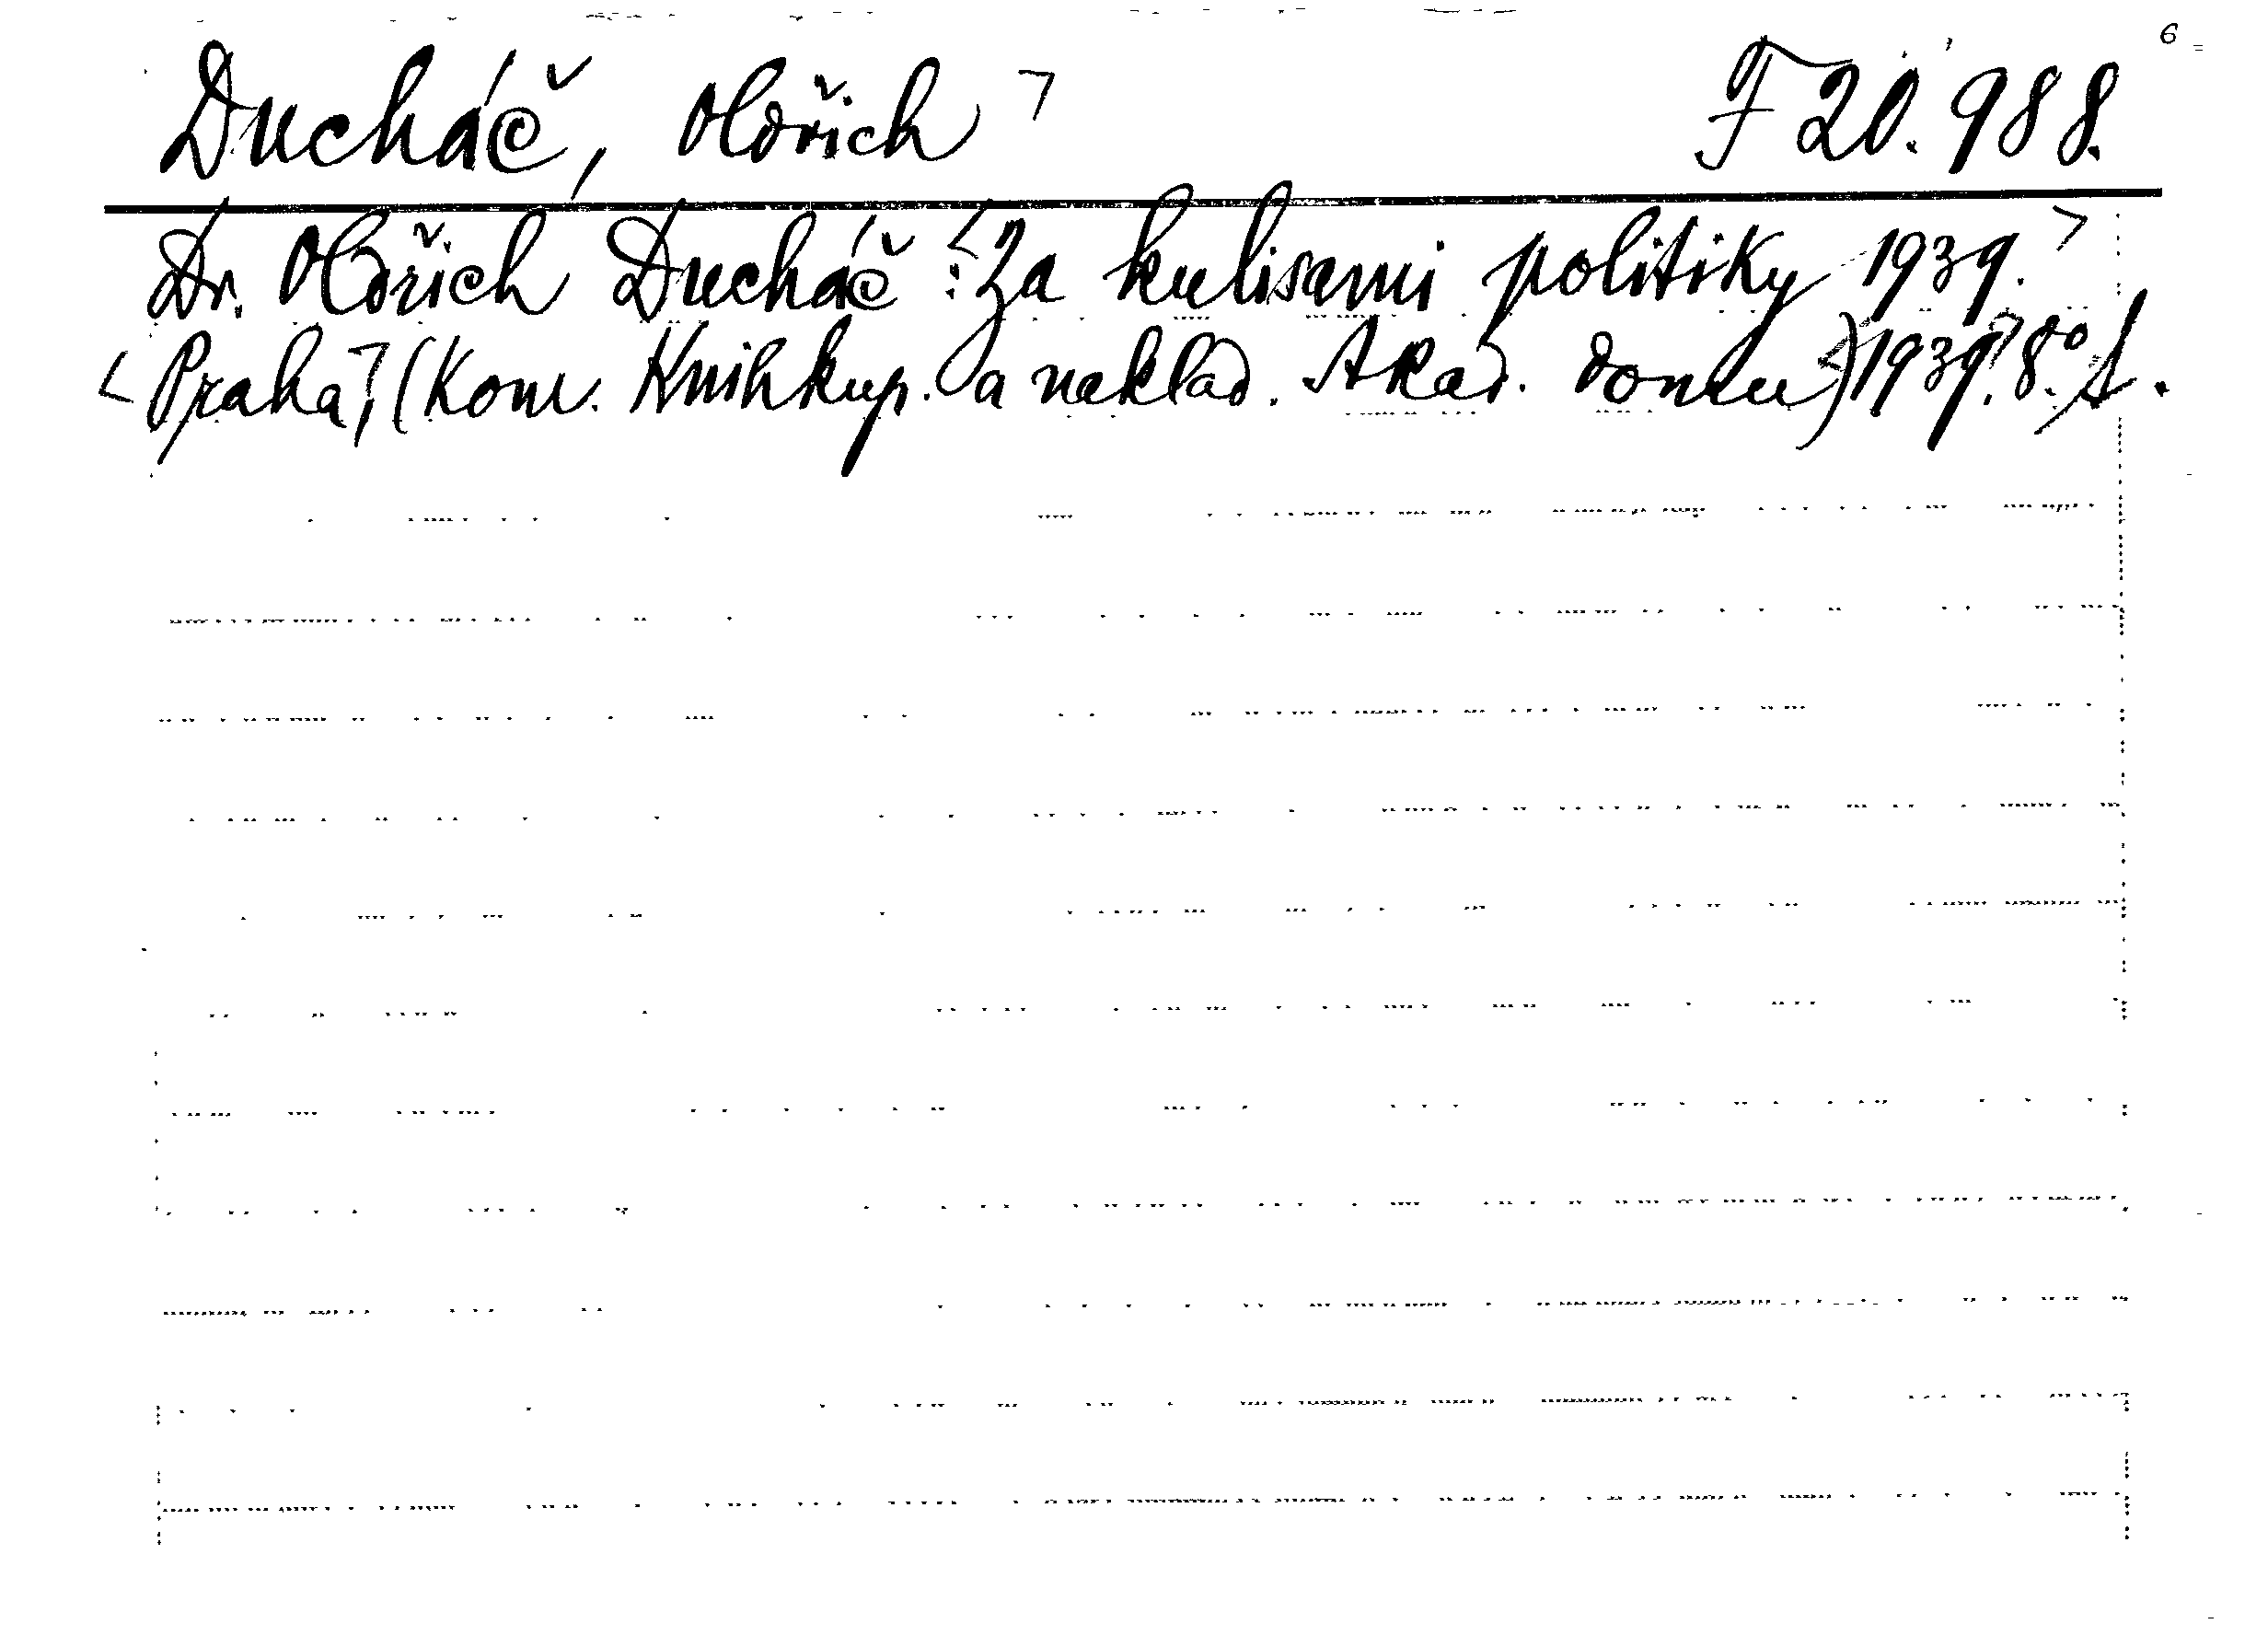 6
Ducháč, Oldřich > F 20.988.
Dr. Oldřich Ducháč: <Za kulisami politiky 1939.>
<Praha,> (Kom. Knihkup. a naklad. Akad. domu) <1939.> 8.°